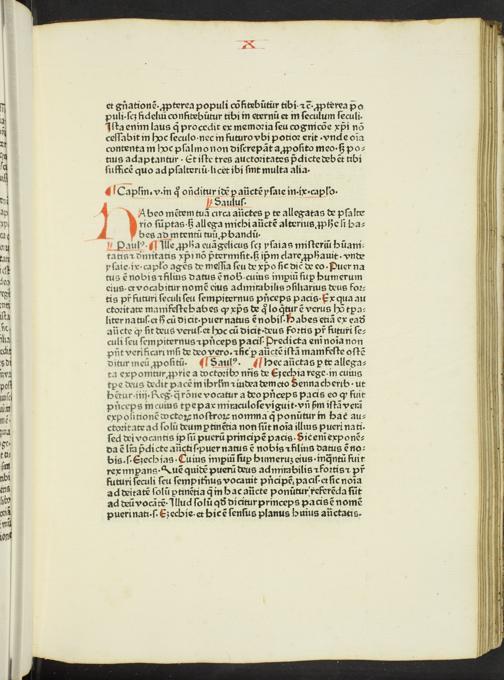 X
et gñationē. ꝓpterea populi cōfitebūtur tibi. ⁊c̄. ꝓpterea p̄o
puli. scꝫ fideliū confitebūtur tibi in eternū et in seculum seculi.
Ista enim laus q̄ procedit ex memoria seu cognicōe xp̄i nō
cessabit in hoc seculo. nec in futuro vbi potior erit. vnde oīa
contenta in hoc psalmo non discrepāt a ꝓposito meo. sꝫ po-
tius adaptantur. Et iste tres auctoritates p̄dicte debēt tibi
sufficē quo ad psalteriū. licet ibi sint multa alia.
¶ Capłm. v. in q̊ oñditur idē ꝑ auc̄tē ysaie in. ix. capło.
Saulus.
Habeo mētem tuā circa auc̄tes ꝑ te allegatas de psalte
rio sūptas. sꝫ allega michi auc̄tē alterius, ꝓphe si ha-
bes ad intentū tuū, ꝓbandū.
Paulꝰ. ¶ Ille, ꝓpha euāgelicus scꝫ ysaias misteriū hūani-
tatis ⁊ diuinitatis xp̄i nō p̄termisit. sꝫ ip̄m clare, ꝓphauit. vnde
ysaie. ix. capło agēs de messia seu de xp̄o sic dic̄ de eo. Puer na
tus ē nobis ⁊ filius datus ē nob̄. cuius impiū suꝑ humerum
eius, et vocabitur nomē eius admirabilis ↄsiliarius deus for-
tis pr̄ futuri seculi seu sempiternus p̄nceps pacis. Ex qua au
ctoritate manifeste habes ꝙ xp̄s de q̊ loq̄tur ē verus hō tꝑa-
liter natus. et ħ cū dicit. puer natus ē nobis. Habes etiā ex eađ
auc̄te ꝙ sit deus verus. et hoc cū dicit. deus fortis pr̄ futuri se-
culi seu sempiternus ⁊ p̄nceps pacis. Predicta eni noīa non
pn̄t verificari nisi de deo vero. ⁊ sic ꝑ auc̄tē istā manifeste ostē
ditur meū, ꝓpositū. ¶ Saulꝰ. ¶ hec auc̄tas ꝑ te allega-
ta exponitur, ꝓprie a doctorib⁹ nr̄is de Ezechia rege. in cuius
tꝑe deus dedit pacē in ihrłm ⁊ iudea dempto Sennacherib. ut
hētur. iiii. Reg. q̄ rōne vocatur a deo p̄nceps pacis eo ꝙ fuit
p̄nceps in cuius tꝑe pax miraculose viguit. vn̄ ꝑm istā verā
expositionē doctoꝝ nostroꝝ nomina q̄ ponūtur in hac au-
ctoritate ad solū deum ꝑtinētia non sūt noīa illius pueri nati.
sed dei vocantis ip̄m puerū principē pacis. Sic eni exponē-
da ē lr̄a p̄dicte auc̄tis. puer natus ē nobis ⁊ filius datus ē no-
bis. s. Ezechias. Cuius impiū suꝑ humeꝝ eius. inq̄ntū fuit
rex imꝑans. Quē quidē puerū deus admirabilis ⁊ fortis ⁊ pr̄
futuri seculi seu sempit̄nus vocauit p̄ncipē. pacis. et sic noīa
ad deitatē solū ꝑtinētia q̄ in hac auc̄te ponūtur, referēda sūt
ad deū vocātē. Illud solū qđ dicitur princeps pacis ē nomē
pueri nati. s. Ezechie. et hic ē sensus planus huius auc̄tatis.